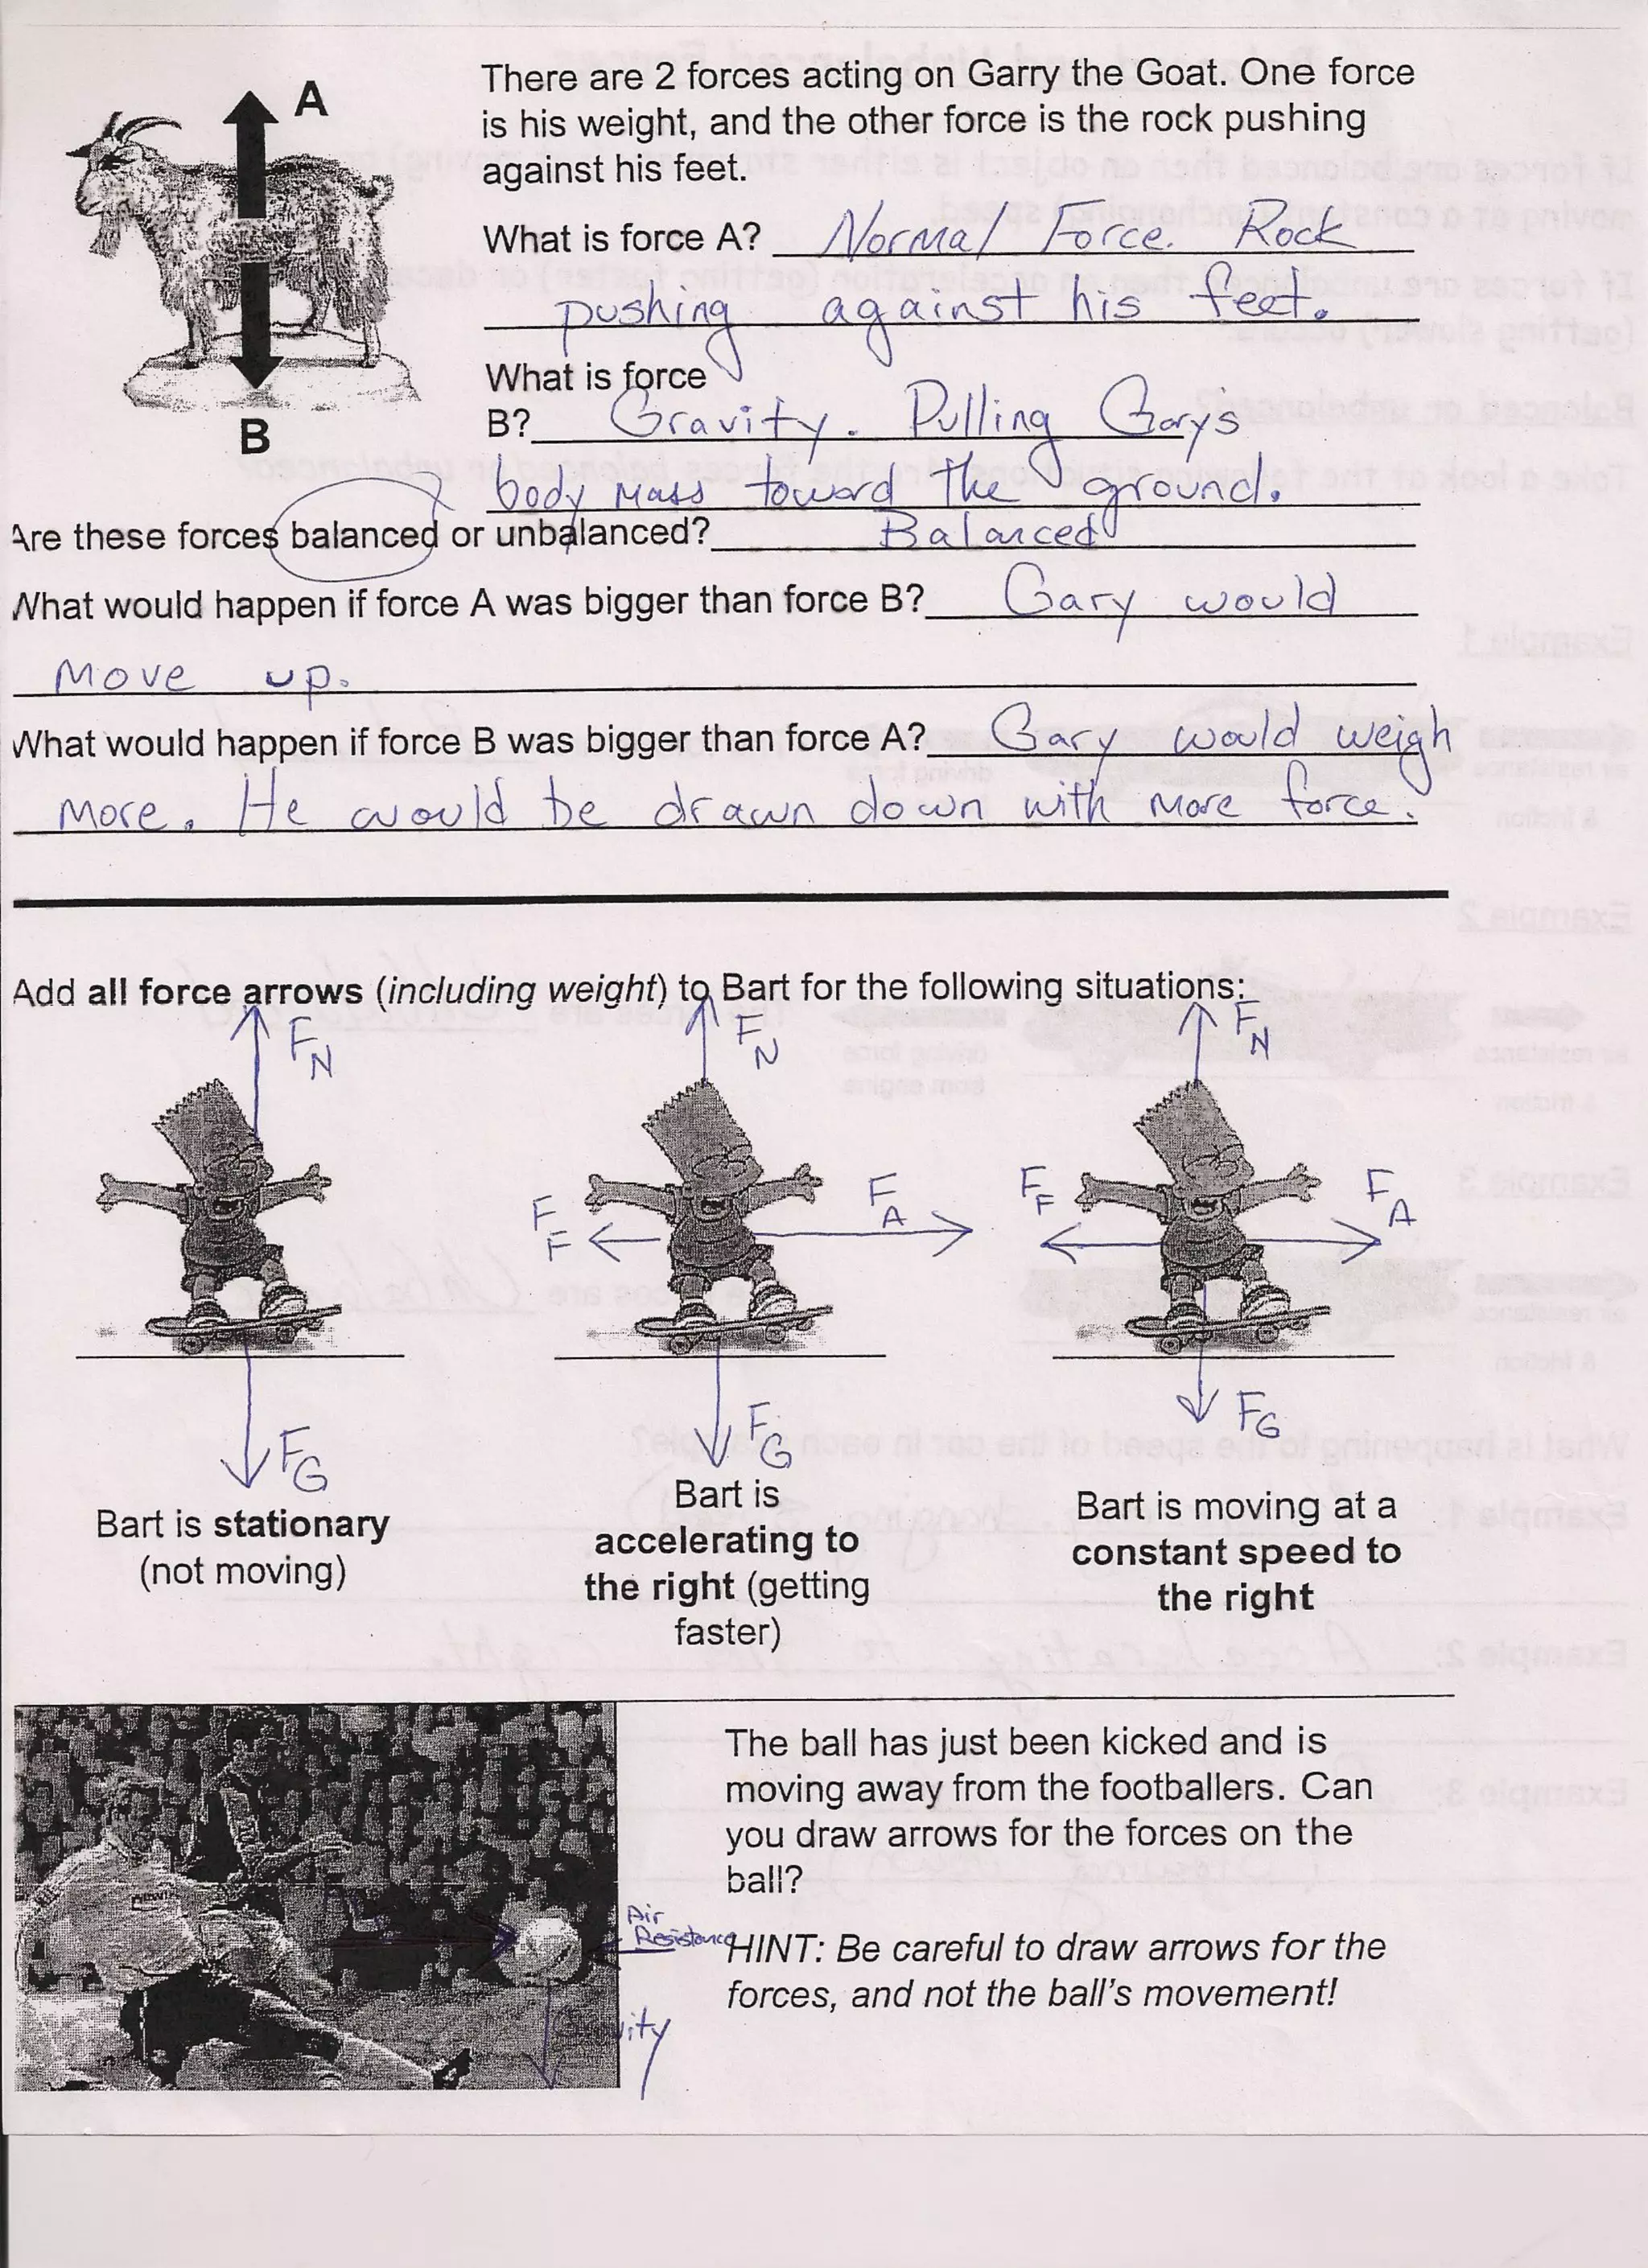 A
There are 2 forces acting on Garry the Goat. One force
is his weight, and the other force is the rock pushing
against his feet.
What is force A? Normal Force. Rock
pushing against his feet.
What is force
B? Gravity. Pulling Garys
B
body mass toward the ground.
Are these forces balanced or unbalanced? Balanced
What would happen if force A was bigger than force B? Gary would
move up.
What would happen if force B was bigger than force A? Gary would weigh
more. He would be drawn down with more force.
Add all force arrows (including weight) to Bart for the following situations:
FN FN FN
FF FA FF FA
FG FG FG
Bart is stationary
(not moving)
Bart is
accelerating to
the right (getting
faster)
Bart is moving at a
constant speed to
the right
The ball has just been kicked and is
moving away from the footballers. Can
you draw arrows for the forces on the
ball?
Air
Resistance
HINT: Be careful to draw arrows for the
forces, and not the ball's movement!
Gravity